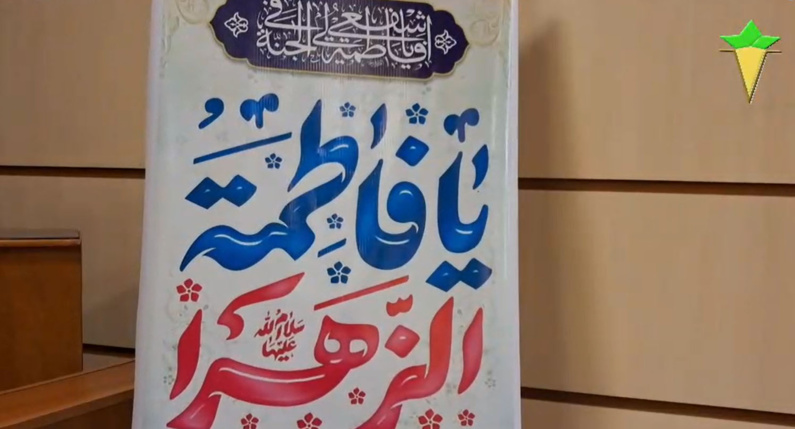 یا فاطمة اشفعي لي في الجنة
یا فاطمة
الزهرا
سلام الله علیها